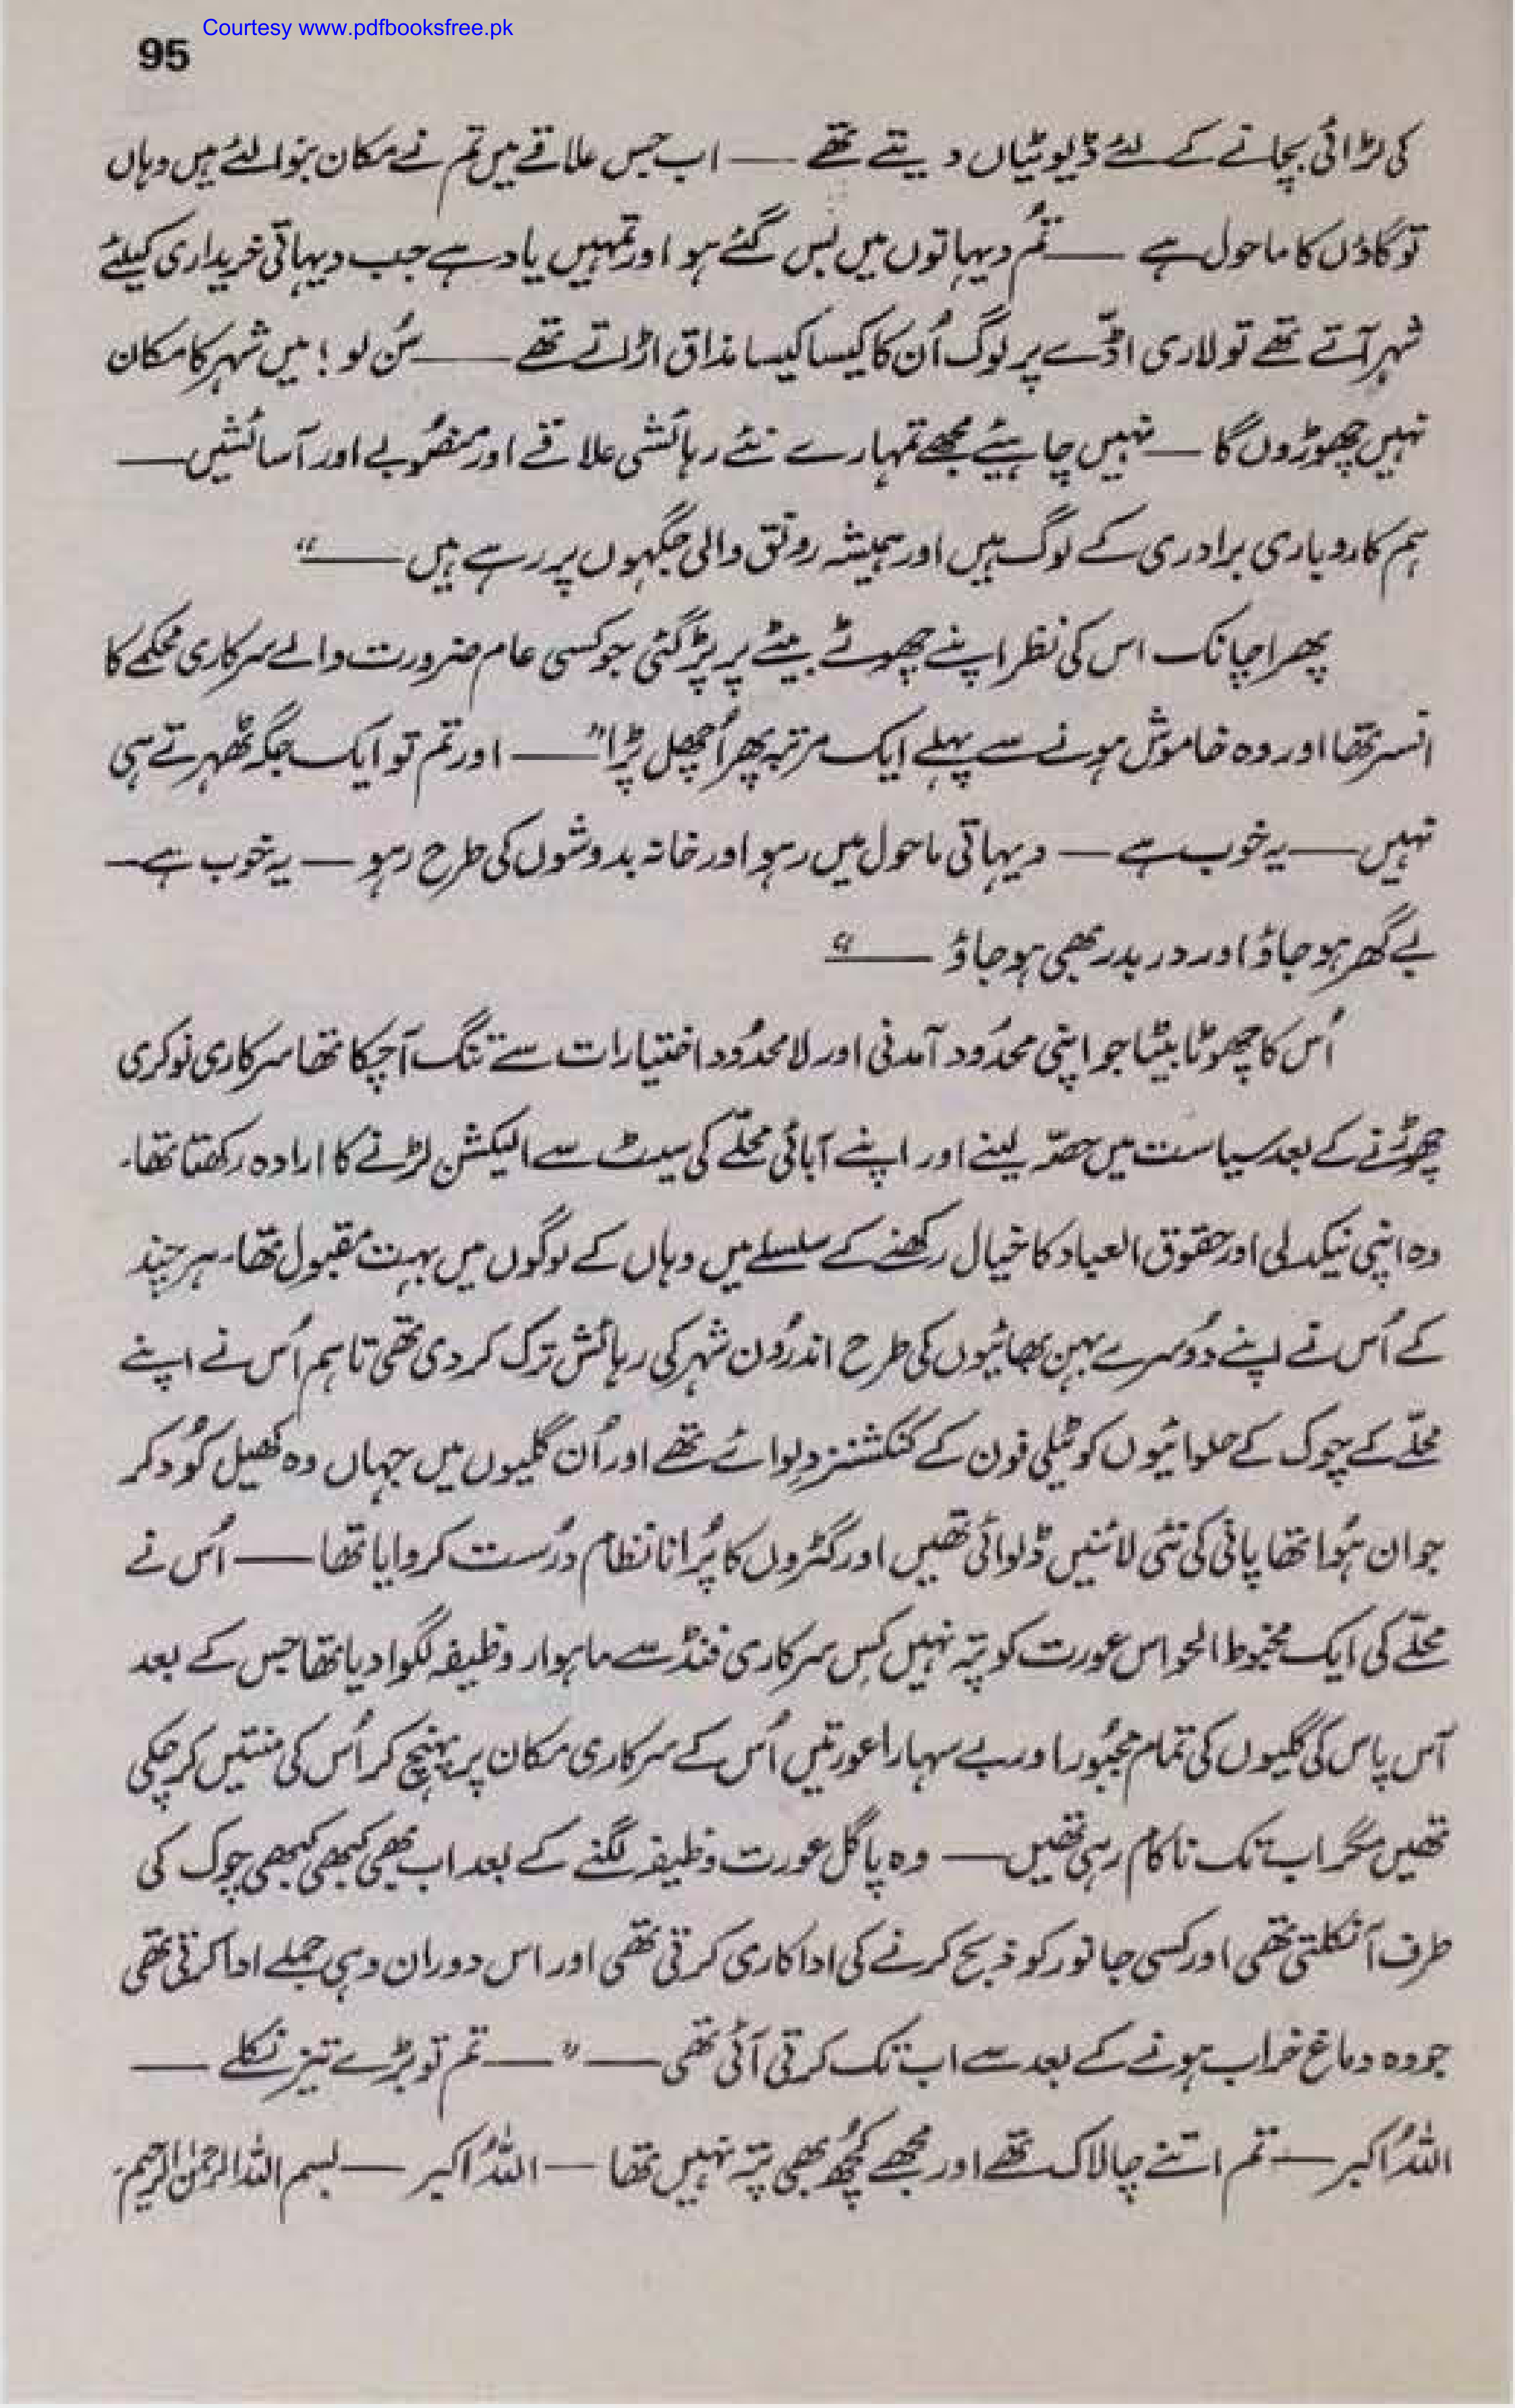 Courtesy www.pdfbooksfree.pk
95
کی لڑائی بچانے کے لئے ڈیوٹیاں دیتے تھے — اب جس علاقے میں تم نے مکان بنوا لئے ہیں وہاں
تو گاؤں کا ماحول ہے — تُم دیہاتوں میں بس گئے ہو اور تمہیں یاد ہے جب دیہاتی خریداری کیلئے
شہر آتے تھے تو لاری اڈّے پر لوگ اُن کا کیسا کیسا مذاق اڑاتے تھے — سُن لو! میں شہر کا مکان
نہیں چھوڑوں گا — نہیں چاہیئے مجھے تمہارے نئے رہائشی علاقے اور منصُوبے اور آسائشیں —
ہم کاروباری برادری کے لوگ ہیں اور ہمیشہ رونق والی جگہوں پر رہے ہیں —“
پھر اچانک اس کی نظر اپنے چھوٹے بیٹے پر پڑ گئی جو کسی عام ضرورت والے سرکاری محکمے کا
افسر تھا اور وہ خاموش ہونے سے پہلے ایک مرتبہ پھر اُچھل پڑا ”— اور تم تو ایک جگہ ٹھہرتے ہی
نہیں — یہ خوب ہے — دیہاتی ماحول میں رہو اور خانہ بدوشوں کی طرح رہو — یہ خوب ہے —
بے گھر ہو جاؤ اور در بدر بھی ہو جاؤ —“
اُس کا چھوٹا بیٹا جو اپنی محدُود آمدنی اور لامحدُود اختیارات سے تنگ آ چکا تھا سرکاری نوکری
چھوڑنے کے بعد سیاست میں حصّہ لینے اور اپنے آبائی محلّے کی سیٹ سے الیکشن لڑنے کا ارادہ رکھتا تھا۔
وہ اپنی نیکدلی اور حقوق العباد کا خیال رکھنے کے سلسلے میں وہاں کے لوگوں میں بہت مقبول تھا۔ ہر چند
کے اُس نے اپنے دُوسرے بہن بھائیوں کی طرح اندرُون شہر کی رہائش ترک کر دی تھی تاہم اُس نے اپنے
محلّے کے چوک کے حلوائیوں کو ٹیلی فون کے کنکشنز دِلوائے تھے اور اُن گلیوں میں جہاں وہ کھیل کُود کر
جوان ہُوا تھا پانی کی نئی لائنیں ڈلوائی تھیں اور گٹروں کا پُرانا نظام درُست کروایا تھا — اُس نے
محلّے کی ایک مخبوط الحواس عورت کو پتہ نہیں کِس سرکاری فنڈ سے ماہوار وظیفہ لگوا دیا تھا جس کے بعد
آس پاس کی گلیوں کی تمام مجبُور اور بے سہارا عورتیں اُس کے سرکاری مکان پر پہنچ کر اُس کی منتیں کر چکی
تھیں مگر اب تک ناکام رہی تھیں — وہ پاگل عورت وظیفہ لگنے کے بعد اب بھی کبھی کبھی چوک کی
طرف آ نکلتی تھی اور کسی جانور کو ذبح کرنے کی اداکاری کرتی تھی اور اس دوران وہی جملے ادا کرتی تھی
جو وہ دماغ خراب ہونے کے بعد سے اب تک کرتی آئی تھی — ”— تم تو بڑے تیز نکلے —
اللہُ اکبر — تم اتنے چالاک تھے اور مجھے کُچھ بھی پتہ نہیں تھا — اللہُ اکبر — بسم اللہ الرحمٰن الرحیم۔